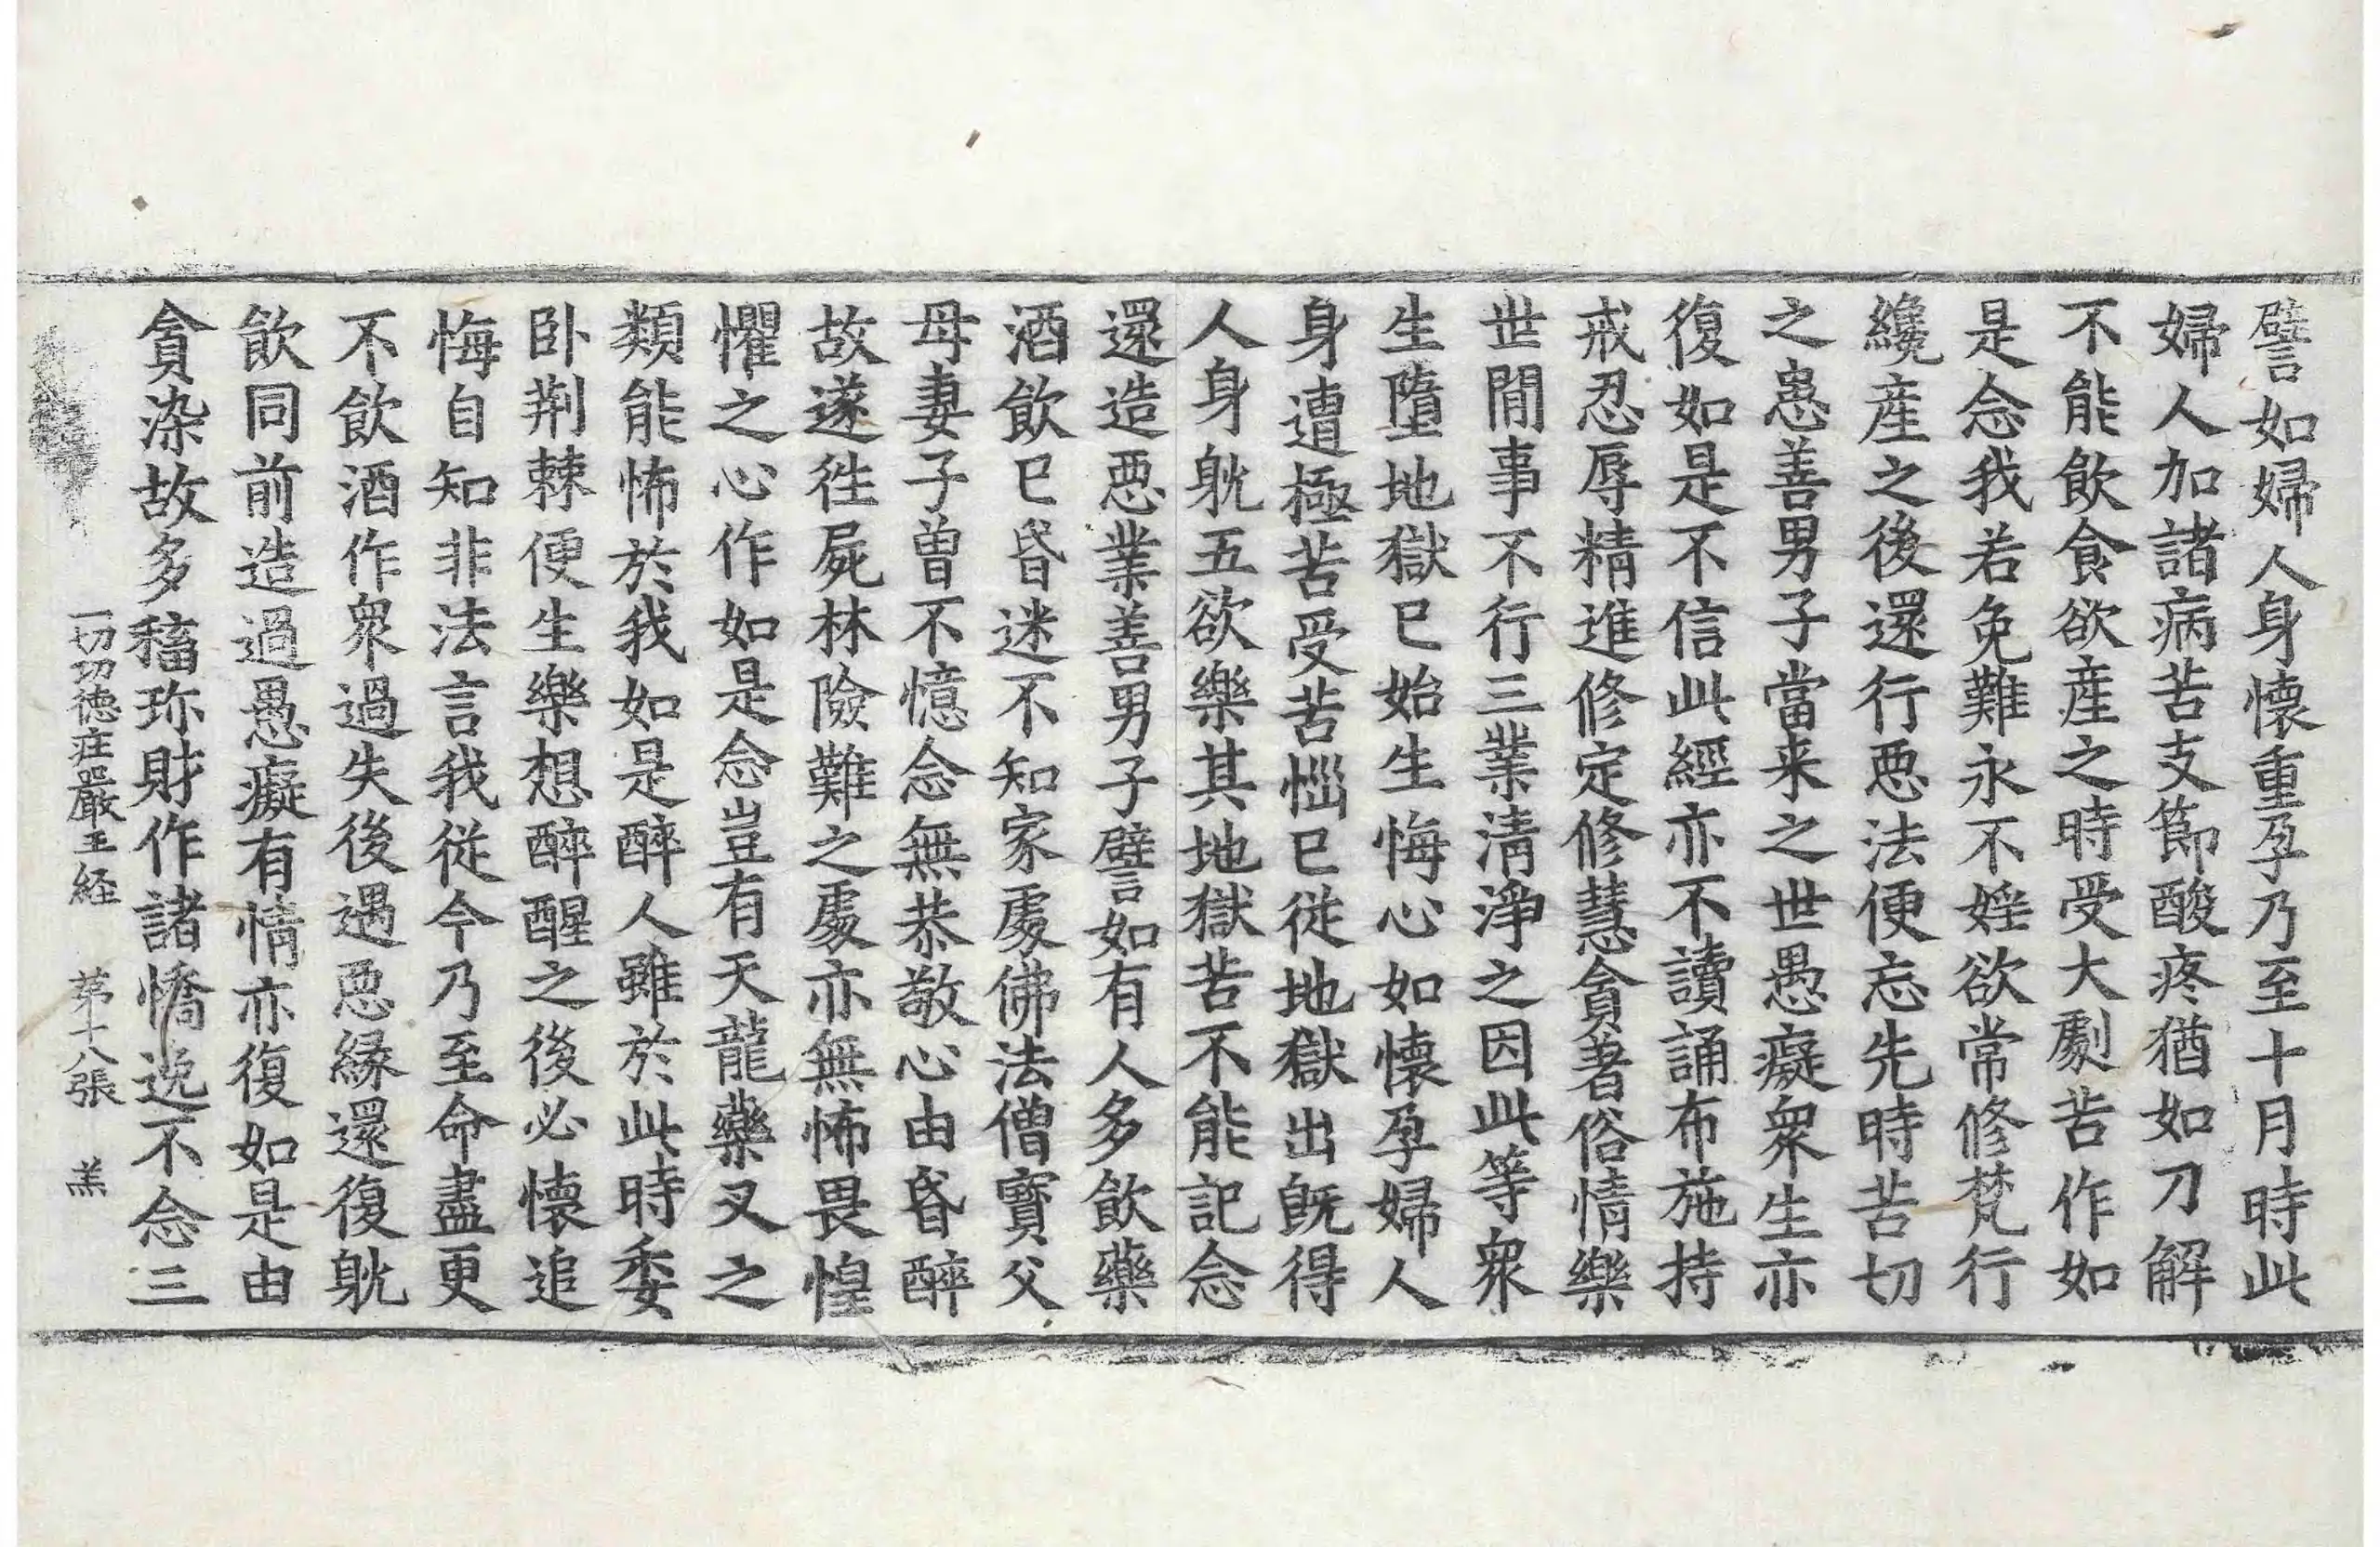 譬如婦人身懷重孕乃至十月時此
婦人加諸病苦支節酸疼猶如刀解
不能飲食欲産之時受大劇苦作如
是念我若免難永不婬欲常修梵行
纔産之後還行悪法便忘先時苦切
之患善男子當来之世愚癡衆生亦
復如是不信此經亦不讀誦布施持
戒忍辱精進修定修慧貪著俗情樂
世間事不行三業清淨之因此等衆
生墮地獄巳始生悔心如懷孕婦人
身遭極苦受苦惱巳從地獄出旣得
人身躭五欲樂其地獄苦不能記念
還造悪業善男子譬如有人多飲藥
酒飲巳昏迷不知家處佛法僧寳父
母妻子曽不憶念無恭敬心由昏醉
故遂徃屍林險難之處亦無怖畏惶
懼之心作如是念豈有天龍藥叉之
類能怖於我如是醉人雖於此時委
卧荆棘便生樂想醉醒之後必懷追
悔自知非法言我從今乃至命盡更
不飲酒作衆過失後遇悪縁還復躭
飲同前造過愚癡有情亦復如是由
貪染故多稸珎財作諸憍逸不念三
一切功德庄嚴王経　苐十八張　羔